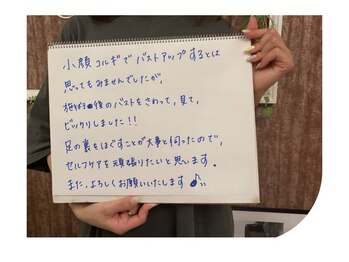 小顔コルギでバストアップするとは
思ってもみませんでしたが、
施術後のバストをさわって、見て、
ビックリしました!!
足の裏をほぐすことが大事と伺ったので、
セルフケアを頑張りたいと思います。
また、よろしくお願いいたします♪